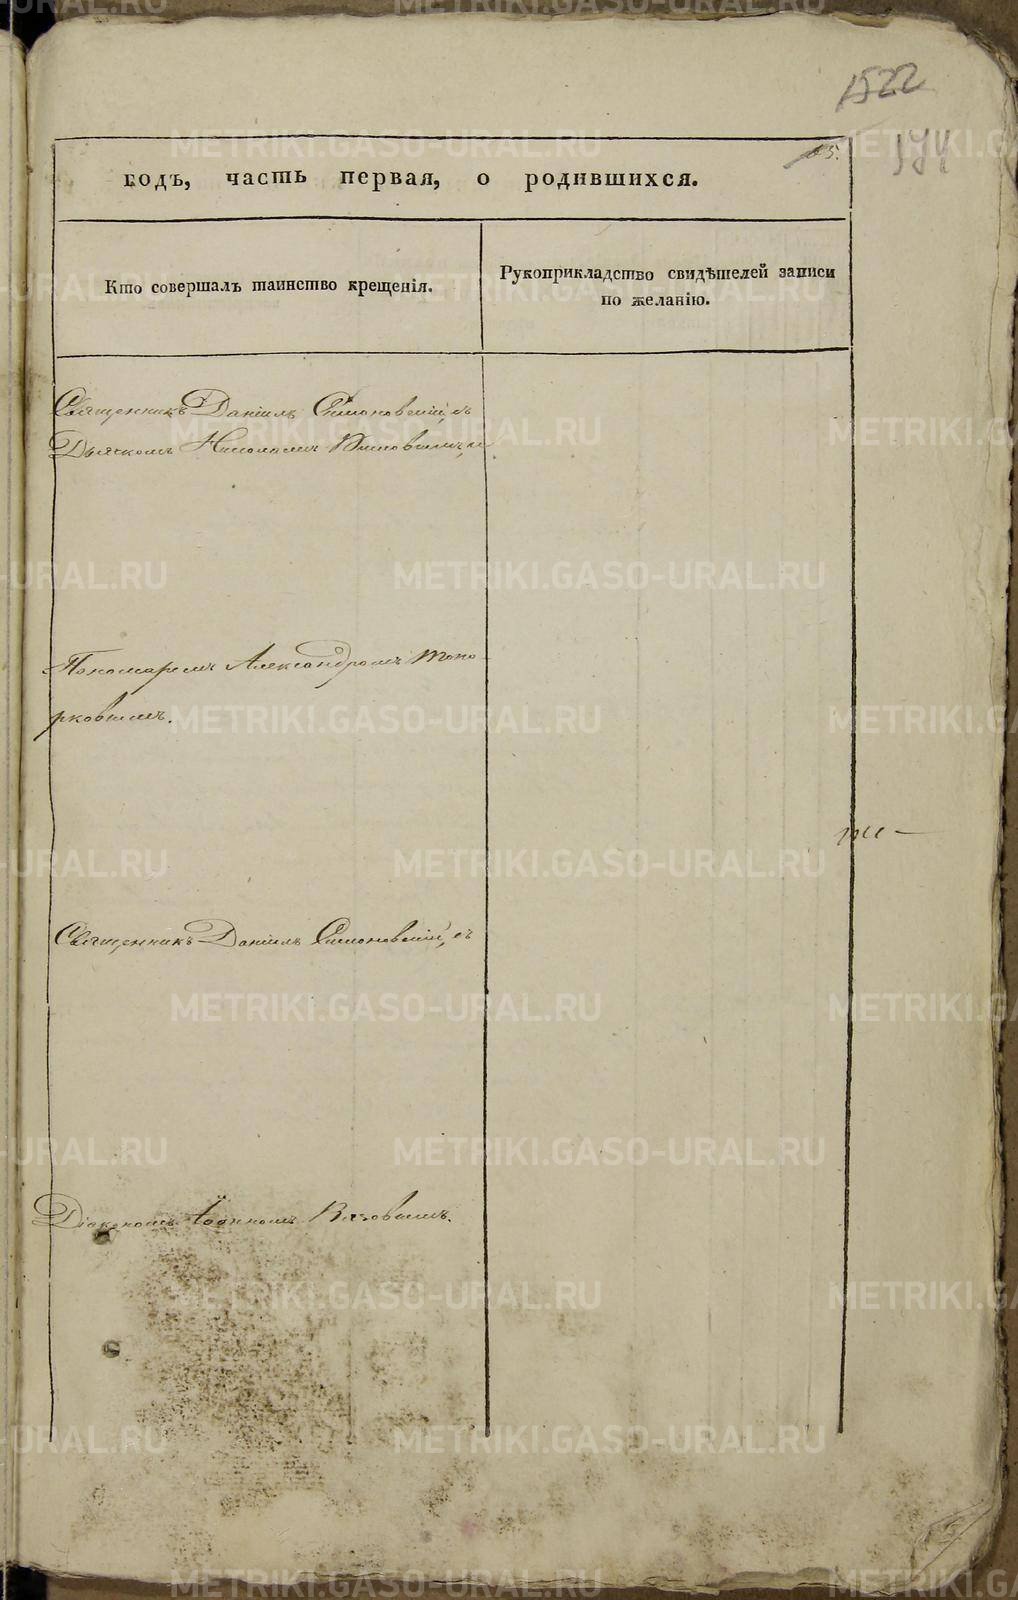 1522
годъ, часть первая, о родившихся.
Кто совершалъ таинство крещенія.
Рукоприкладство свидѣтелей записи
по желанію.
Священникъ Даніилъ Симоновскій, съ
Дьячкомъ Николаемъ
Пономаремъ Александромъ Топо-
рковымъ.
Священникъ Даніилъ Симоновскій, съ
Діакономъ Іоанномъ Вязовымъ.
METRIKI.GASO-URAL.RU